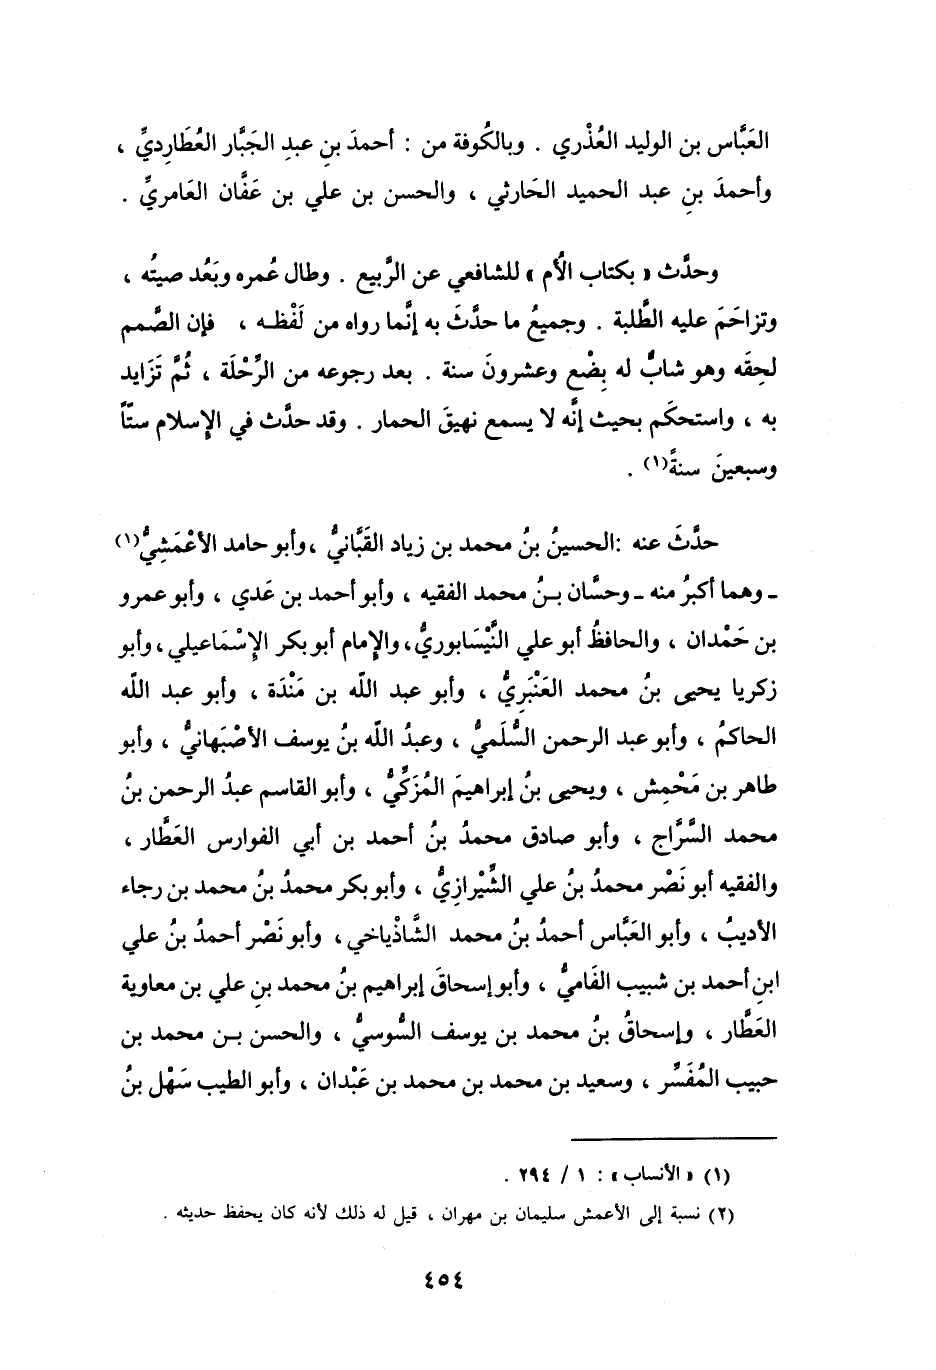 العَبَّاس بن الوليد العُذْري . وبالكُوفة من : أحمدَ بنِ عبدِ الجَبَّار العُطَارِديِّ ،
وأحمدَ بنِ عبد الحميد الحَارثي ، والحسن بن علي بن عَفَّان العَامريِّ .
وحدَّث « بكتاب الأُم » للشافعي عن الرَّبيع . وطال عُمره وبَعُد صيتُه ،
وتزاحَمَ عليه الطَّلبة . وجميعُ ما حدَّثَ به إنَّما رواه من لَفْظه ، فإن الصَّمم
لحِقَه وهو شابٌّ له بِضْع وعشرونَ سنة . بعد رجوعه من الرِّحْلَة ، ثُمَّ تَزَايد
به ، واستحكَم بحيث إنَّه لا يسمع نهيقَ الحمار . وقد حدَّث في الإِسلام ستّاً
وسبعينَ سنةً(١) .
حدَّثَ عنه :الحسينُ بنُ محمد بن زياد القَبَّانيُّ ،وأبو حامد الأعْمَشِيُّ(١)
ـ وهما أكبرُ منه ـ وحسَّان بـنُ محمد الفقيه ، وأبو أحمد بن عَدي ، وأبو عمرو
بن حَمْدان ، والحافظُ أبو علي النَّيْسَابوريُّ،والإِمام أبو بكر الإِسْمَاعيلي ،وأبو
زكريا يحيى بنُ محمد العَنْبَرِيُّ ، وأبو عبد الله بن مَنْدَة ، وأبو عبد الله
الحاكمُ ، وأبو عبد الرحمن السُّلَميُّ ، وعبدُ الله بنُ يوسف الأصْبَهانيُّ ، وأبو
طاهر بن مَحْمِش ، ويحيى بنُ إبراهيمَ المُزَكِّيُّ ، وأبو القاسم عبدُ الرحمن بنُ
محمد السَّرَّاج ، وأبو صادق محمدُ بنُ أحمد بن أبي الفوارس العَطَّار ،
والفقيه أبو نَصْر محمدُ بنُ علي الشِّيْرازِيُّ ، وأبو بكر محمدُ بنُ محمد بن رجاء
الأديبُ ، وأبو العَبَّاس أحمدُ بنُ محمد الشَّاذْياخي ، وأبو نَصْر أحمدُ بنُ علي
ابنِ أحمد بن شبيب الفَاميُّ ، وأبو إسحاقَ إبراهيم بنُ محمد بنِ علي بن معاوية
العَطَّار ، وإسحاقُ بنُ محمد بن يوسف السُّوسيُّ ، والحسن بـن محمد بن
حبيب المُفَسِّر ، وسعيد بن محمد بن محمد بن عَبْدان ، وأبو الطيب سَهْل بنُ
(١) « الأنساب » : ١ / ٢٩٤ .
(٢) نسبة إلى الأعمش سليمان بن مهران ، قيل له ذلك لأنه كان يحفظ حديثه .
٤٥٤